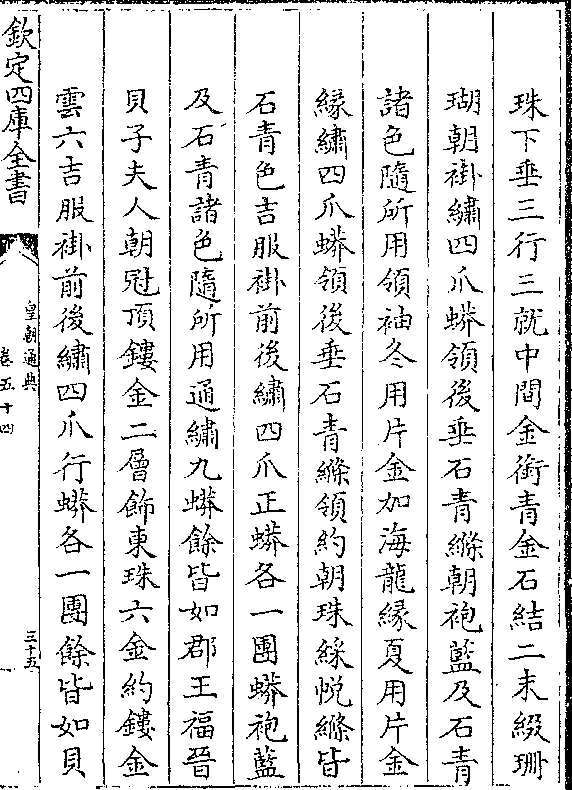 珠下垂三行三就中間金銜青金石結二末綴珊
瑚朝褂繡四爪蟒領後垂石青縧朝袍藍及石青
諸色隨所用領袖冬用片金加海龍緣夏用片金
緣繡四爪蟒領後垂石青縧領約朝珠綵帨縧皆
石青色吉服褂前後繡四爪正蟒各一團蟒袍藍
及石青諸色隨所用通繡九蟒餘皆如郡王福晉
貝子夫人朝冠頂鏤金二層飾東珠六金約鏤金
雲六吉服褂前後繡四爪行蟒各一團餘皆如貝
欽定四庫全書
皇朝通典
卷五十四
三十五